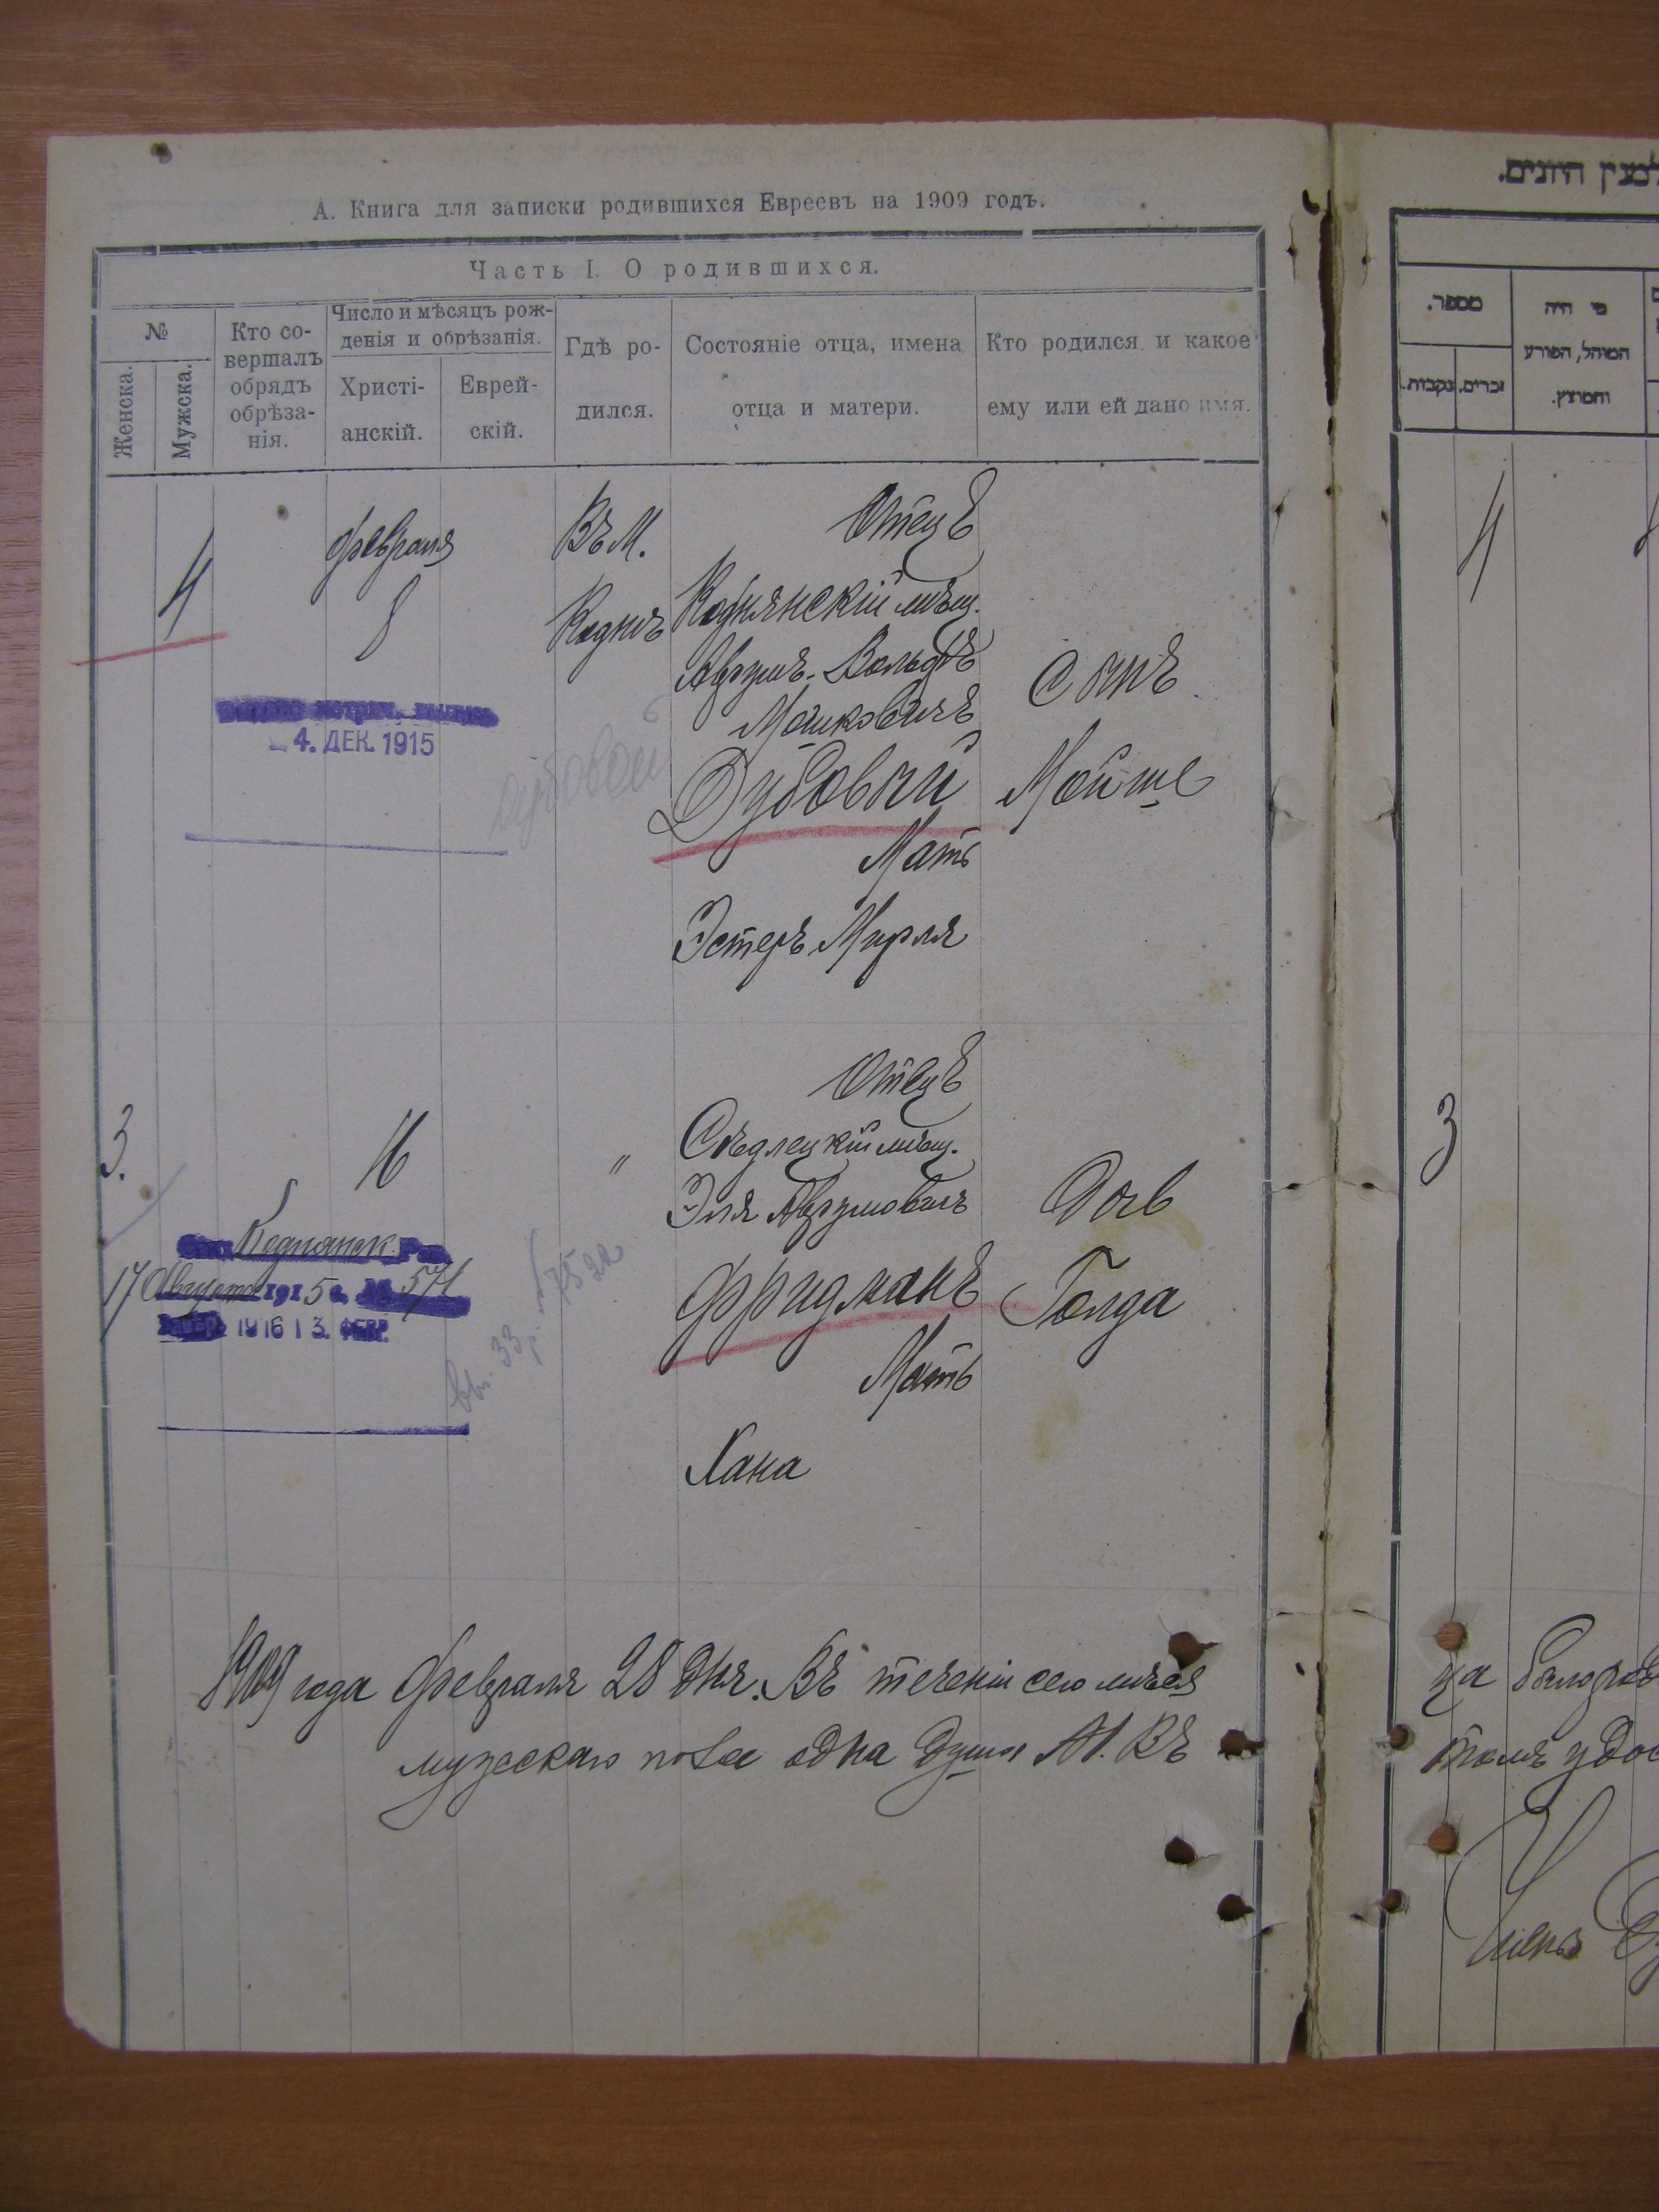 А. Книга для записки родившихся Евреевъ на 1909 годъ.
Часть I. О родившихся.
№
Женска.
Мужска.
Кто совершалъ обрядъ обрѣзанія.
Число и мѣсяцъ рожденія и обрѣзанія.
Христіанскій.
Еврейскій.
Гдѣ родился.
Состояніе отца, имена отца и матери.
Кто родился и какое ему или ей дано имя.
4
Февраля
8
Въ М.
Коднѣ
Отецъ
Коднянскій мѣщ.
Аврумъ-Вольфъ
Мошковичъ
Дубовый
Мать
Эстеръ Мирля
Сынъ
Мойше
4. ДЕК. 1915
Дубовой
3.
16
"
Отецъ
Сѣдлецкій мѣщ.
Эля Аврумовичъ
Фридманъ
Мать
Хана
Дочь
Голда
Коднянск.
17 Августа 1915 г. № 571
1916 13. ФЕВР.
1909 года Февраля 28 дня. Въ теченіи сего мѣсяца
мужескаго пола одна душа М. Въ
למנין היונים.
מספר.
נקבות.
זכרים.
מי היה
המוהל, הפורע
והמוצץ.
4
3